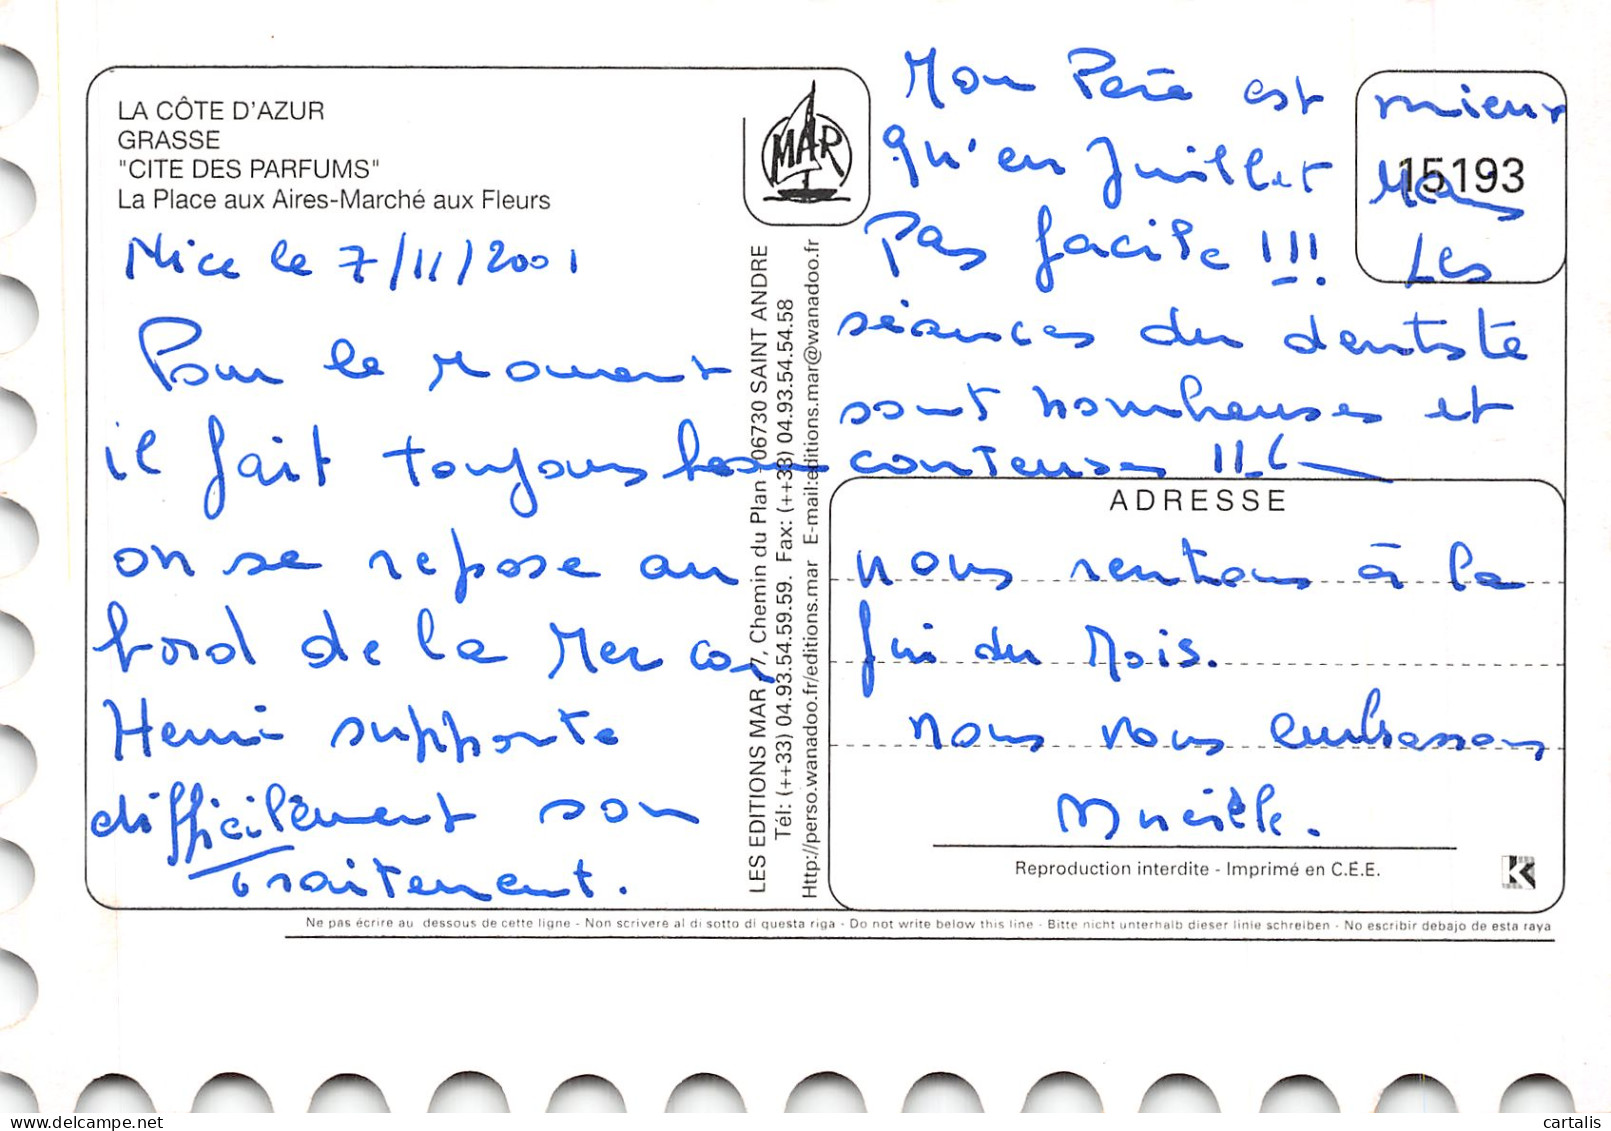 LA CÔTE D'AZUR
GRASSE
"CITE DES PARFUMS"
La Place aux Aires-Marché aux Fleurs
MAR
Nice le 7/11/2001
Pour le moment
il fait toujours beau
on se repose au
bord de la Mer car
Henri supporte
difficilement son
Traitement.
LES EDITIONS MAR, 7, Chemin du Plan 06730 SAINT ANDRE
Tél: (++33) 04.93.54.59.59. Fax: (++33) 04.93.54.54.58
Http://perso.wanadoo.fr/editions.mar E-mail:editions.mar@wanadoo.fr
15193
Mon Père est mieux
qu'en Juillet Mais
Pas facile !!! Les
séances du dentiste
sont nombreuses et
couteuses !!!
ADRESSE
nous rentrons à la
fin du Mois.
nous vous embrassons
Mireille.
Reproduction interdite - Imprimé en C.E.E.
K
Ne pas écrire au dessous de cette ligne - Non scrivere al di sotto di questa riga - Do not write below this line - Bitte nicht unterhalb dieser linie schreiben - No escribir debajo de esta raya
cartalis